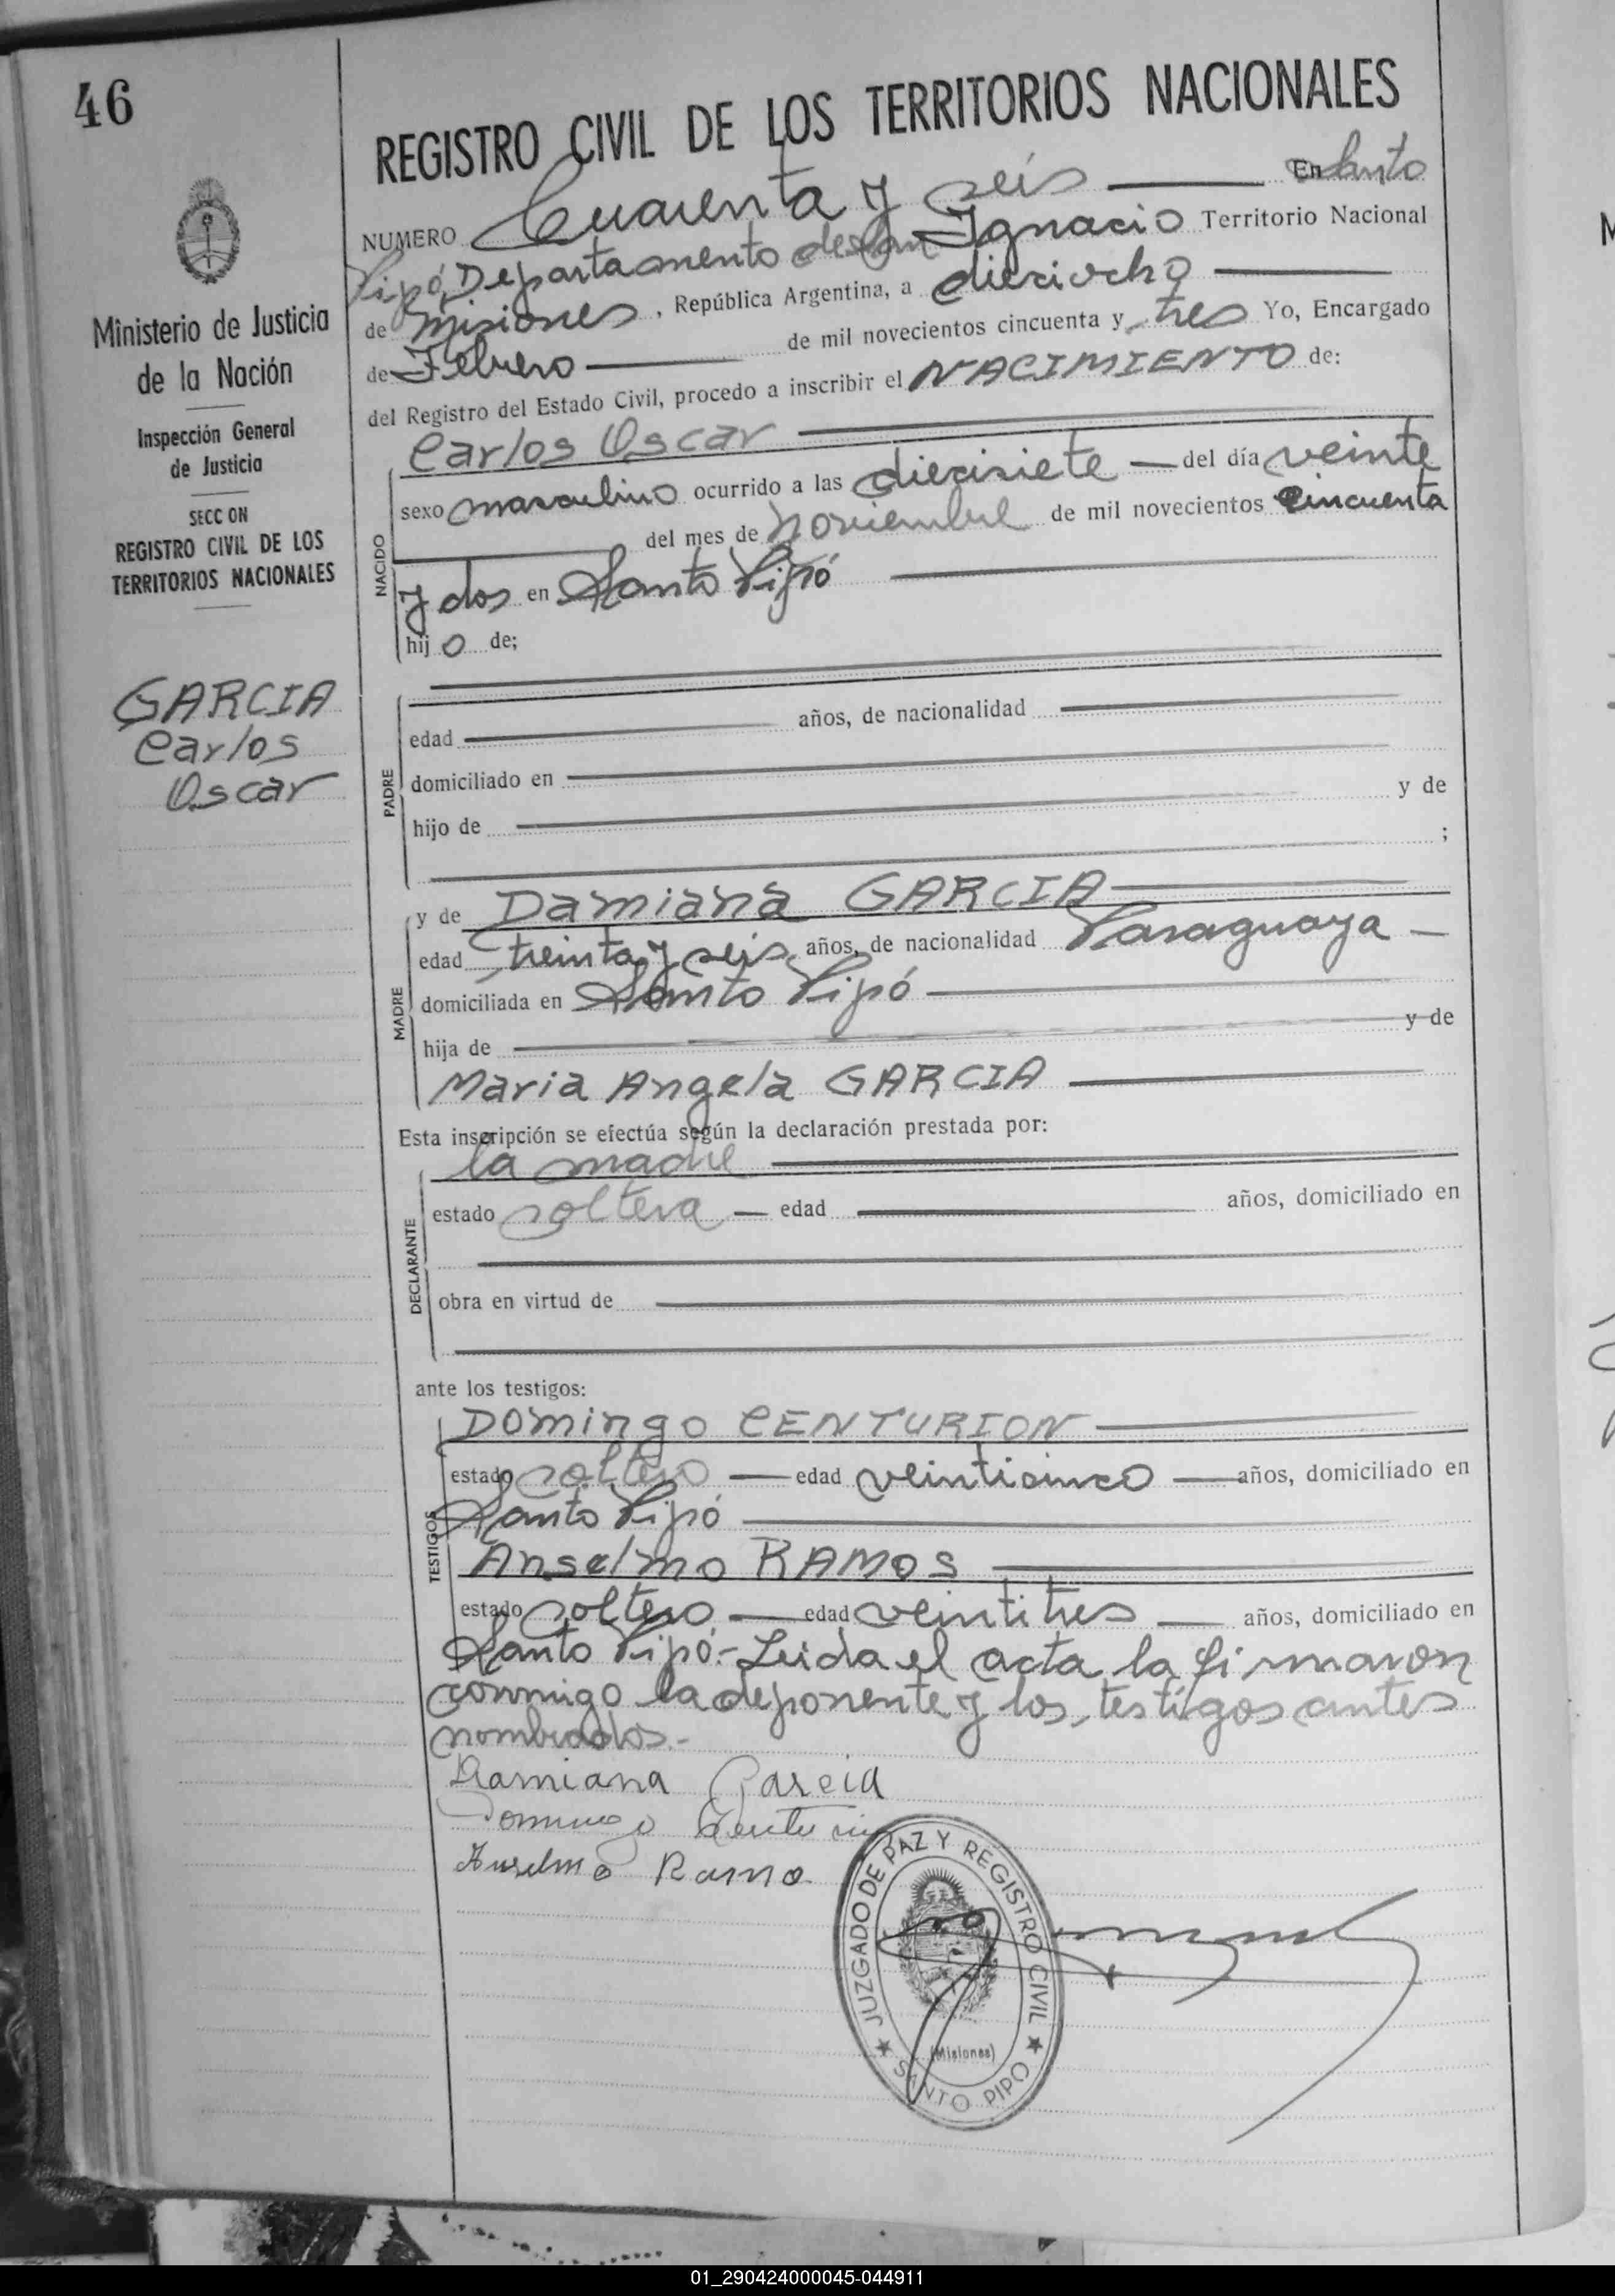 46
REGISTRO CIVIL DE LOS TERRITORIOS NACIONALES
NUMERO Cuarenta y seis En Santo
Pipó, Departamento de San Ignacio Territorio Nacional
de Misiones, República Argentina, a dieciocho
de Febrero de mil novecientos cincuenta y tres Yo, Encargado
del Registro del Estado Civil, procedo a inscribir el NACIMIENTO de:
Ministerio de Justicia
de la Nación
Inspección General
de Justicia
SECC ON
REGISTRO CIVIL DE LOS
TERRITORIOS NACIONALES
GARCIA
Carlos
Oscar
NACIDO
Carlos Oscar
sexo masculino ocurrido a las diecisiete del día veinte
del mes de noviembre de mil novecientos cincuenta
y dos en Santo Pipó
hij o de;
PADRE
edad años, de nacionalidad
domiciliado en
hijo de y de
;
MADRE
y de Damiana GARCIA
edad treinta y seis años, de nacionalidad Paraguaya
domiciliada en Santo Pipó
hija de y de
Maria Angela GARCIA
Esta inscripción se efectúa según la declaración prestada por:
DECLARANTE
la madre
estado soltera edad años, domiciliado en
obra en virtud de
ante los testigos:
TESTIGOS
Domingo CENTURION
estado soltero edad veinticinco años, domiciliado en
Santo Pipó
Anselmo RAMOS
estado soltero edad veintitres años, domiciliado en
Santo Pipó.- Leida el acta la firmaron
conmigo la deponente y los testigos antes
nombrados.-
Damiana Garcia
Domingo Centurion
Anselmo Ramo
JUZGADO DE PAZ Y REGISTRO CIVIL
(Misiones)
SANTO PIPO
01_290424000045-044911